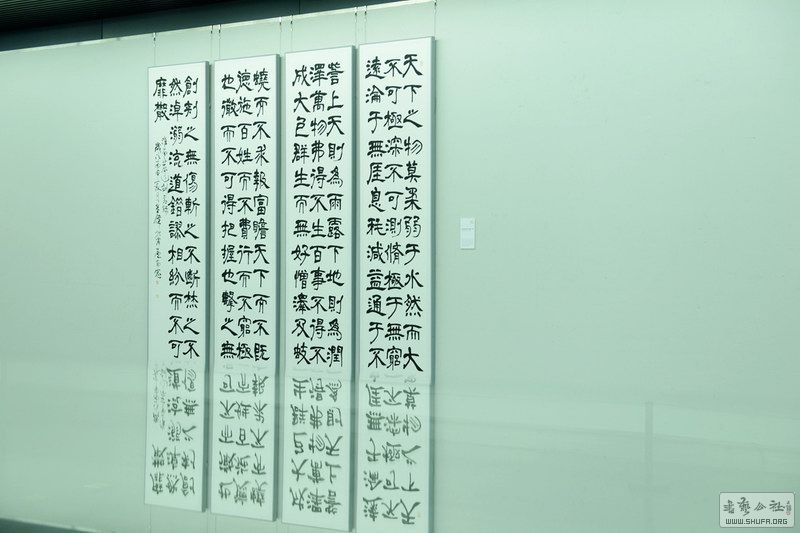 天下之物莫柔弱于水然而大
不可極深不可測脩極于無窮
遠淪于無厓息耗減益通于不
訾上天則為雨露下地則為潤
澤萬物弗得不生百事不得不
成大包群生而無好憎澤及蚑
蟯而不求報富贍天下而不既
德施百姓而不費行而不窮極
也微而不可得把握也擊之無
創刺之無傷斬之不斷焚之不
然淖溺流遁錯謬相紛而不可
靡散
書藝公社
WWW.SHUFA.ORG